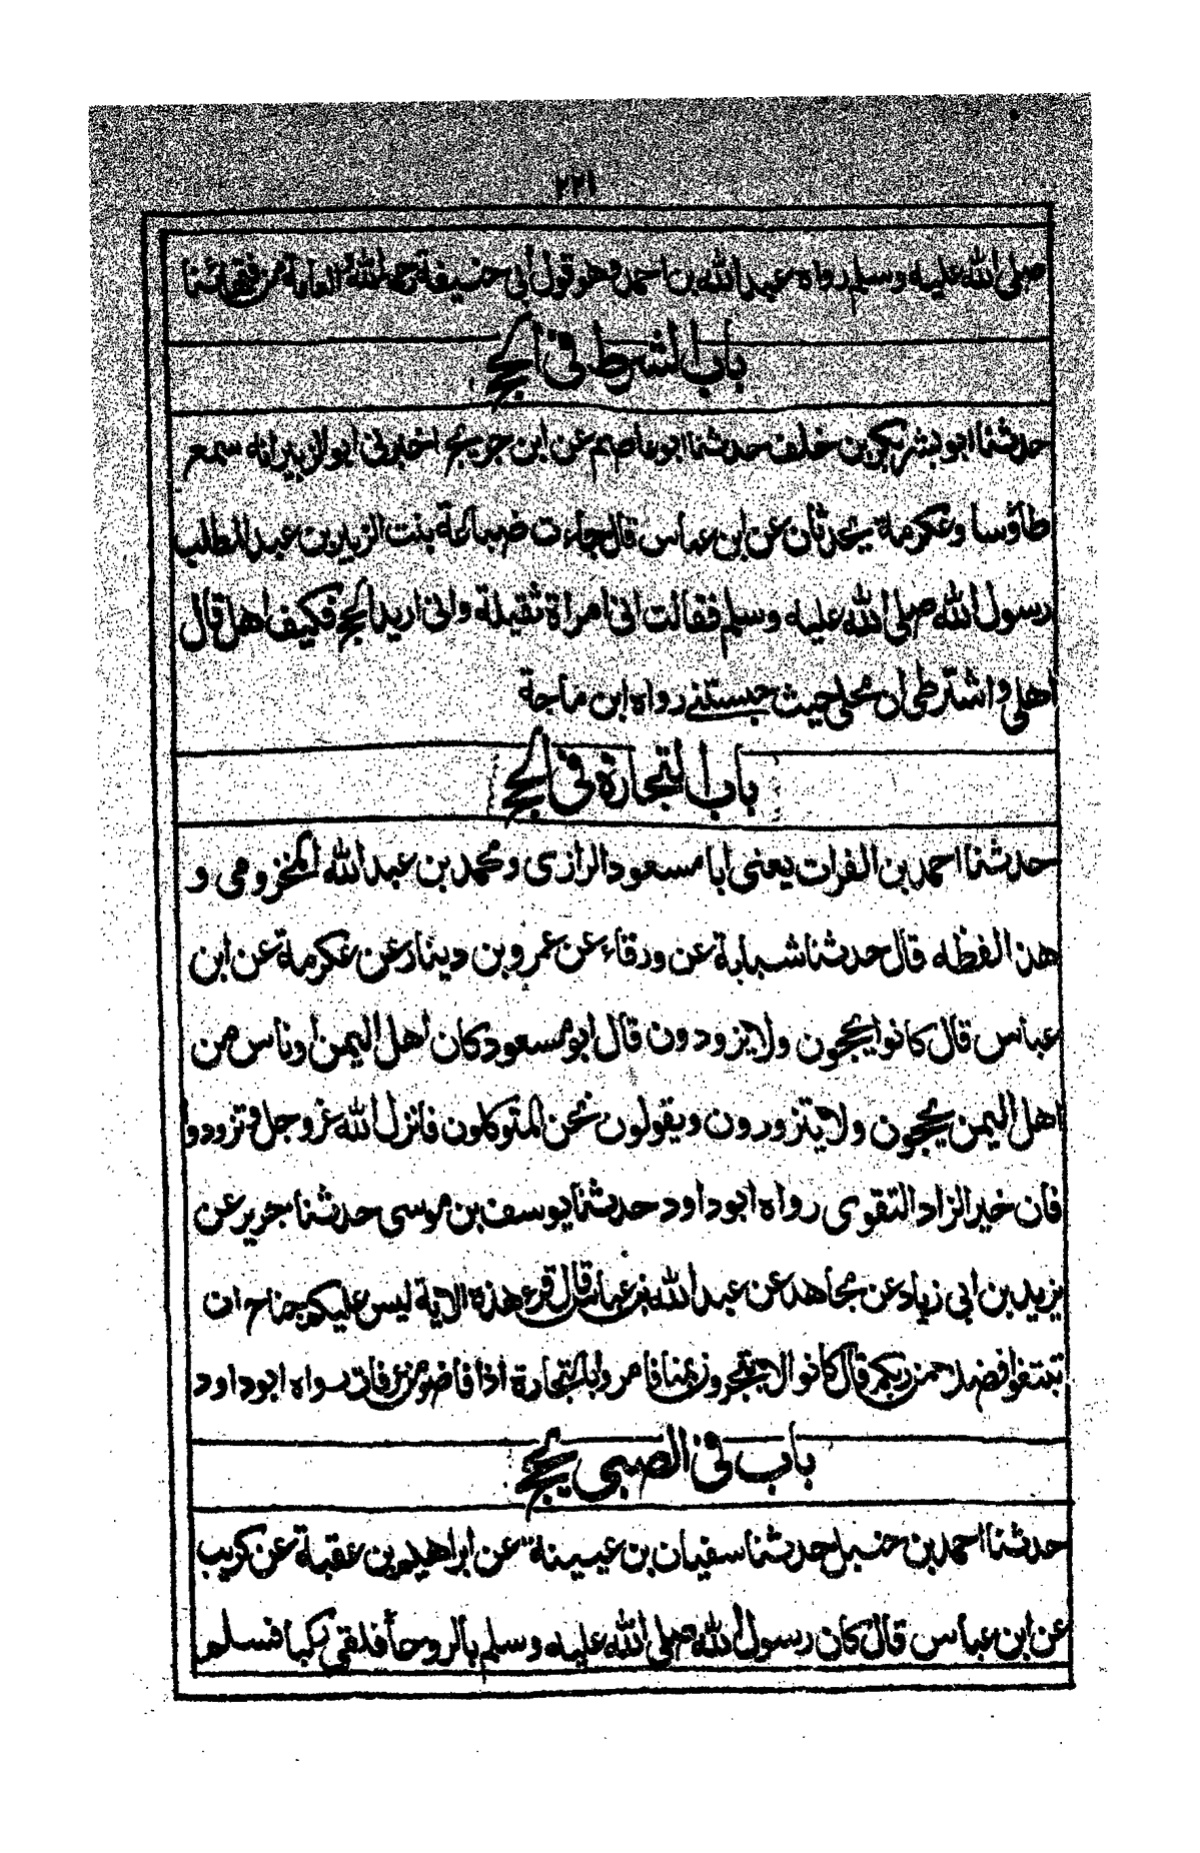 ٢٢١
صلى الله عليه وسلم رواه عبد الله بن احمد وهو قول ابي حنيفة رحمه الله والعامة من فقهائنا
باب الشرط في الحج
حدثنا ابو بشر بكر بن خلف حدثنا ابو عاصم عن ابن جريج اخبرني ابو الزبير انه سمع
طاؤسا وعكرمة يحدثان عن ابن عباس قال جاءت ضباعة بنت الزبير بن عبد المطلب
رسول الله صلى الله عليه وسلم فقالت اني امراة ثقيلة واني اريد الحج فكيف اهل قال
اهلي واشترطي ان محلي حيث حبستني رواه ابن ماجة
باب التجارة في الحج
حدثنا احمد بن الفرات يعني ابا مسعود الرازي ومحمد بن عبد الله المخزومي و
هذا لفظه قال حدثنا شبابة عن ورقاء عن عمرو بن دينار عن عكرمة عن ابن
عباس قال كانوا يحجون ولا يزودون قال ابو مسعود كان اهل اليمن او ناس من
اهل اليمن يحجون ولا يتزورون ويقولون نحن المتوكلون فانزل الله عز وجل وتزودوا
فان خير الزاد التقوى رواه ابو داود حدثنا يوسف بن موسى حدثنا جرير عن
يزيد بن ابي زياد عن مجاهد عن عبد الله بن عباس قال قرء هذه الاية ليس عليكم جناح ان
تبتغوا فضلا من ربكم قال كانوا لا يتجرون بمنا فامروا بالتجارة اذا فاضو من عرفات رواه ابو داود
باب في الصبي يحج
حدثنا احمد بن حنبل حدثنا سفيان بن عيينة عن ابراهيم بن عقبة عن كريب
عن ابن عباس قال كان رسول الله صلى الله عليه وسلم بالروحا فلقي ركبا فسلم